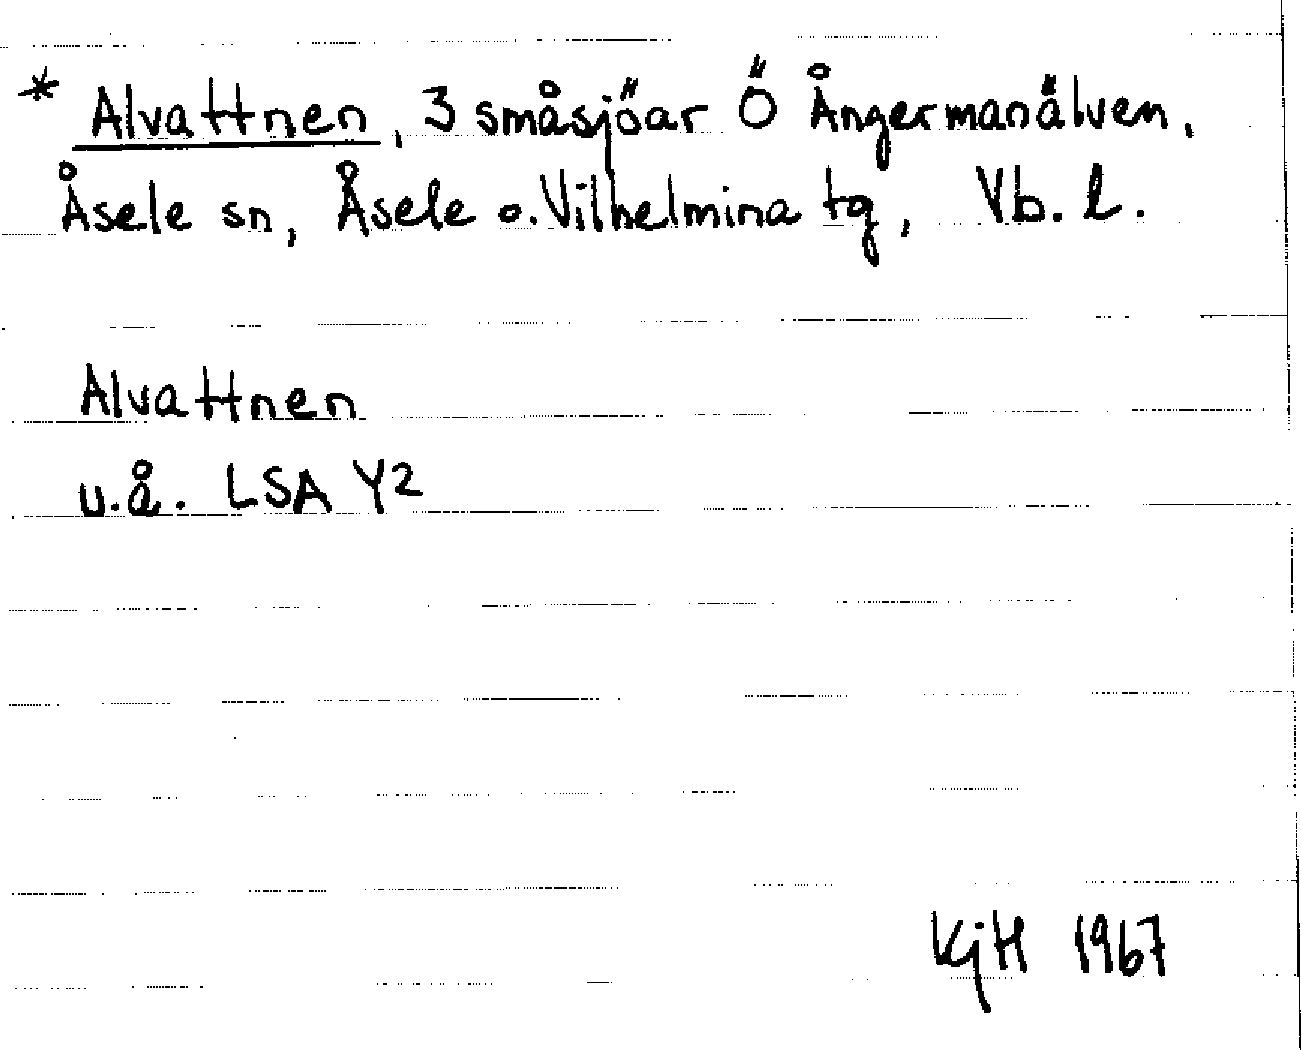 * Alvattnen, 3 småsjöar Ö Ångermanälven,
Åsele sn, Åsele o. Vilhelmina tg, Vb. l.
Alvattnen
u.å. LSA Y2
KjH 1967